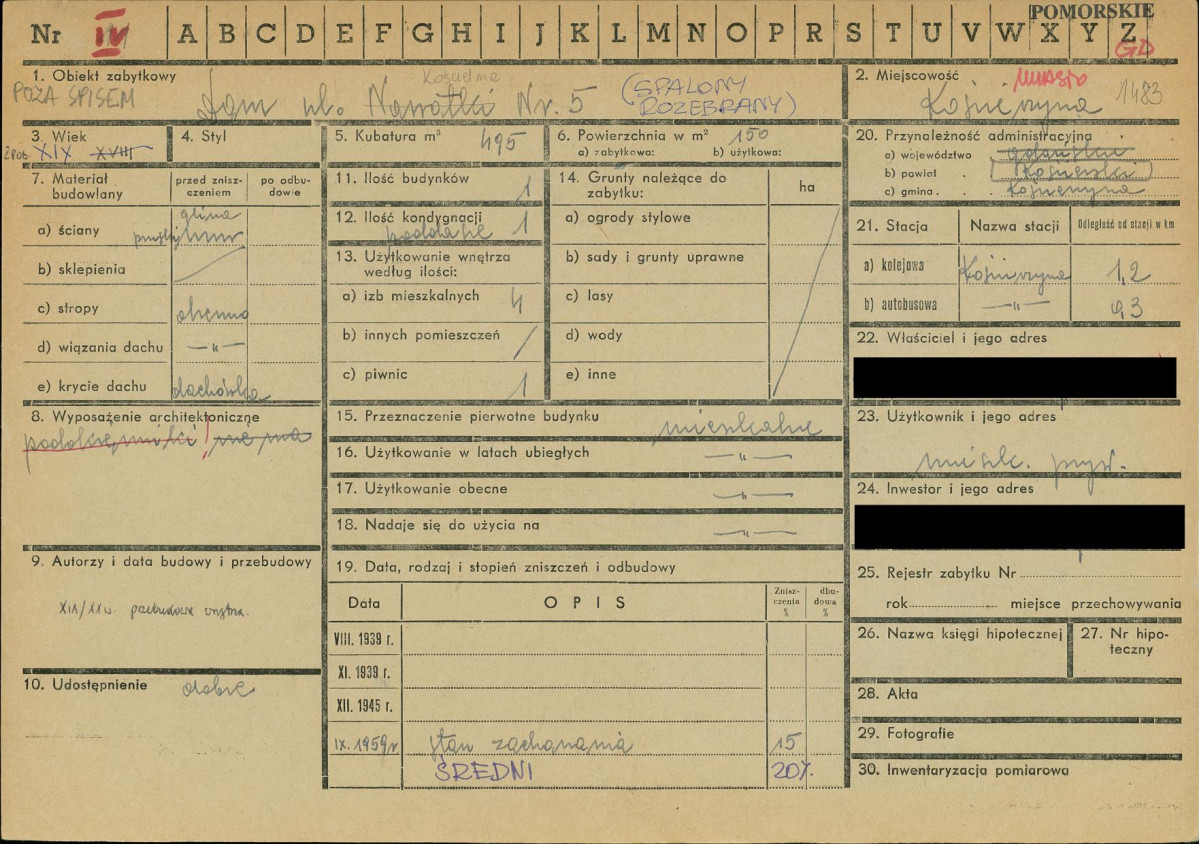 POMORSKIE
Nr IV A B C D E F G H I J K L M N O P R S T U V W X Y Z
GD
1. Obiekt zabytkowy
POZA SPISEM
Dom ul. Nawotki Nr. 5
Kościelna
(SPALONY
ROZEBRANY)
2. Miejscowość
MIASTO
Kościerzyna
1483
3. Wiek
XIX XVIII
4. Styl
5. Kubatura m³ 495
6. Powierzchnia w m² 150
a) zabytkowa: b) użytkowa:
20. Przynależność administracyjna
a) województwo gdańskie
b) powiat Kościerski
c) gmina Kościerzyna
7. Materiał
budowlany
przed znisz-
czeniem
po odbu-
dowie
a) ściany
glina
mur
b) sklepienia
c) stropy
drewno
d) wiązania dachu —"—
e) krycie dachu dachówka
11. Ilość budynków 1
12. Ilość kondygnacji 1
poddasze
13. Użytkowanie wnętrza
według ilości:
a) izb mieszkalnych 4
b) innych pomieszczeń /
c) piwnic 1
14. Grunty należące do
zabytku:
ha
a) ogrody stylowe
b) sady i grunty uprawne
c) lasy
d) wody
e) inne
21. Stacja Nazwa stacji Odległość od stacji w km
a) kolejowa Kościerzyna 1,2
b) autobusowa —"— 0,3
22. Właściciel i jego adres
8. Wyposażenie architektoniczne
nie ma
15. Przeznaczenie pierwotne budynku mieszkalne
16. Użytkowanie w latach ubiegłych —"—
17. Użytkowanie obecne —"—
18. Nadaje się do użycia na —"—
23. Użytkownik i jego adres
mieszk. pryw.
24. Inwestor i jego adres
9. Autorzy i data budowy i przebudowy
XIX/XX w. przebudowa wnętrza.
19. Data, rodzaj i stopień zniszczeń i odbudowy
Data OPIS
Znisz-
czenia
%
dbu-
dowa
%
VIII. 1939 r.
XI. 1939 r.
XII. 1945 r.
IX. 1959 r stan zachowania 15
ŚREDNI 20%
10. Udostępnienie dobre
25. Rejestr zabytku Nr
rok miejsce przechowywania
26. Nazwa księgi hipotecznej
27. Nr hipo-
teczny
28. Akta
29. Fotografie
30. Inwentaryzacja pomiarowa